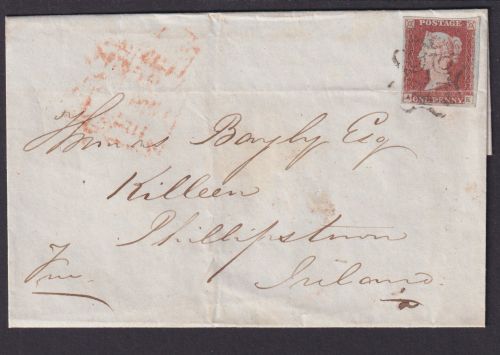 POSTAGE
ONE PENNY
Thomas Bayly Esq
Killeen
Phillipstown
Ireland